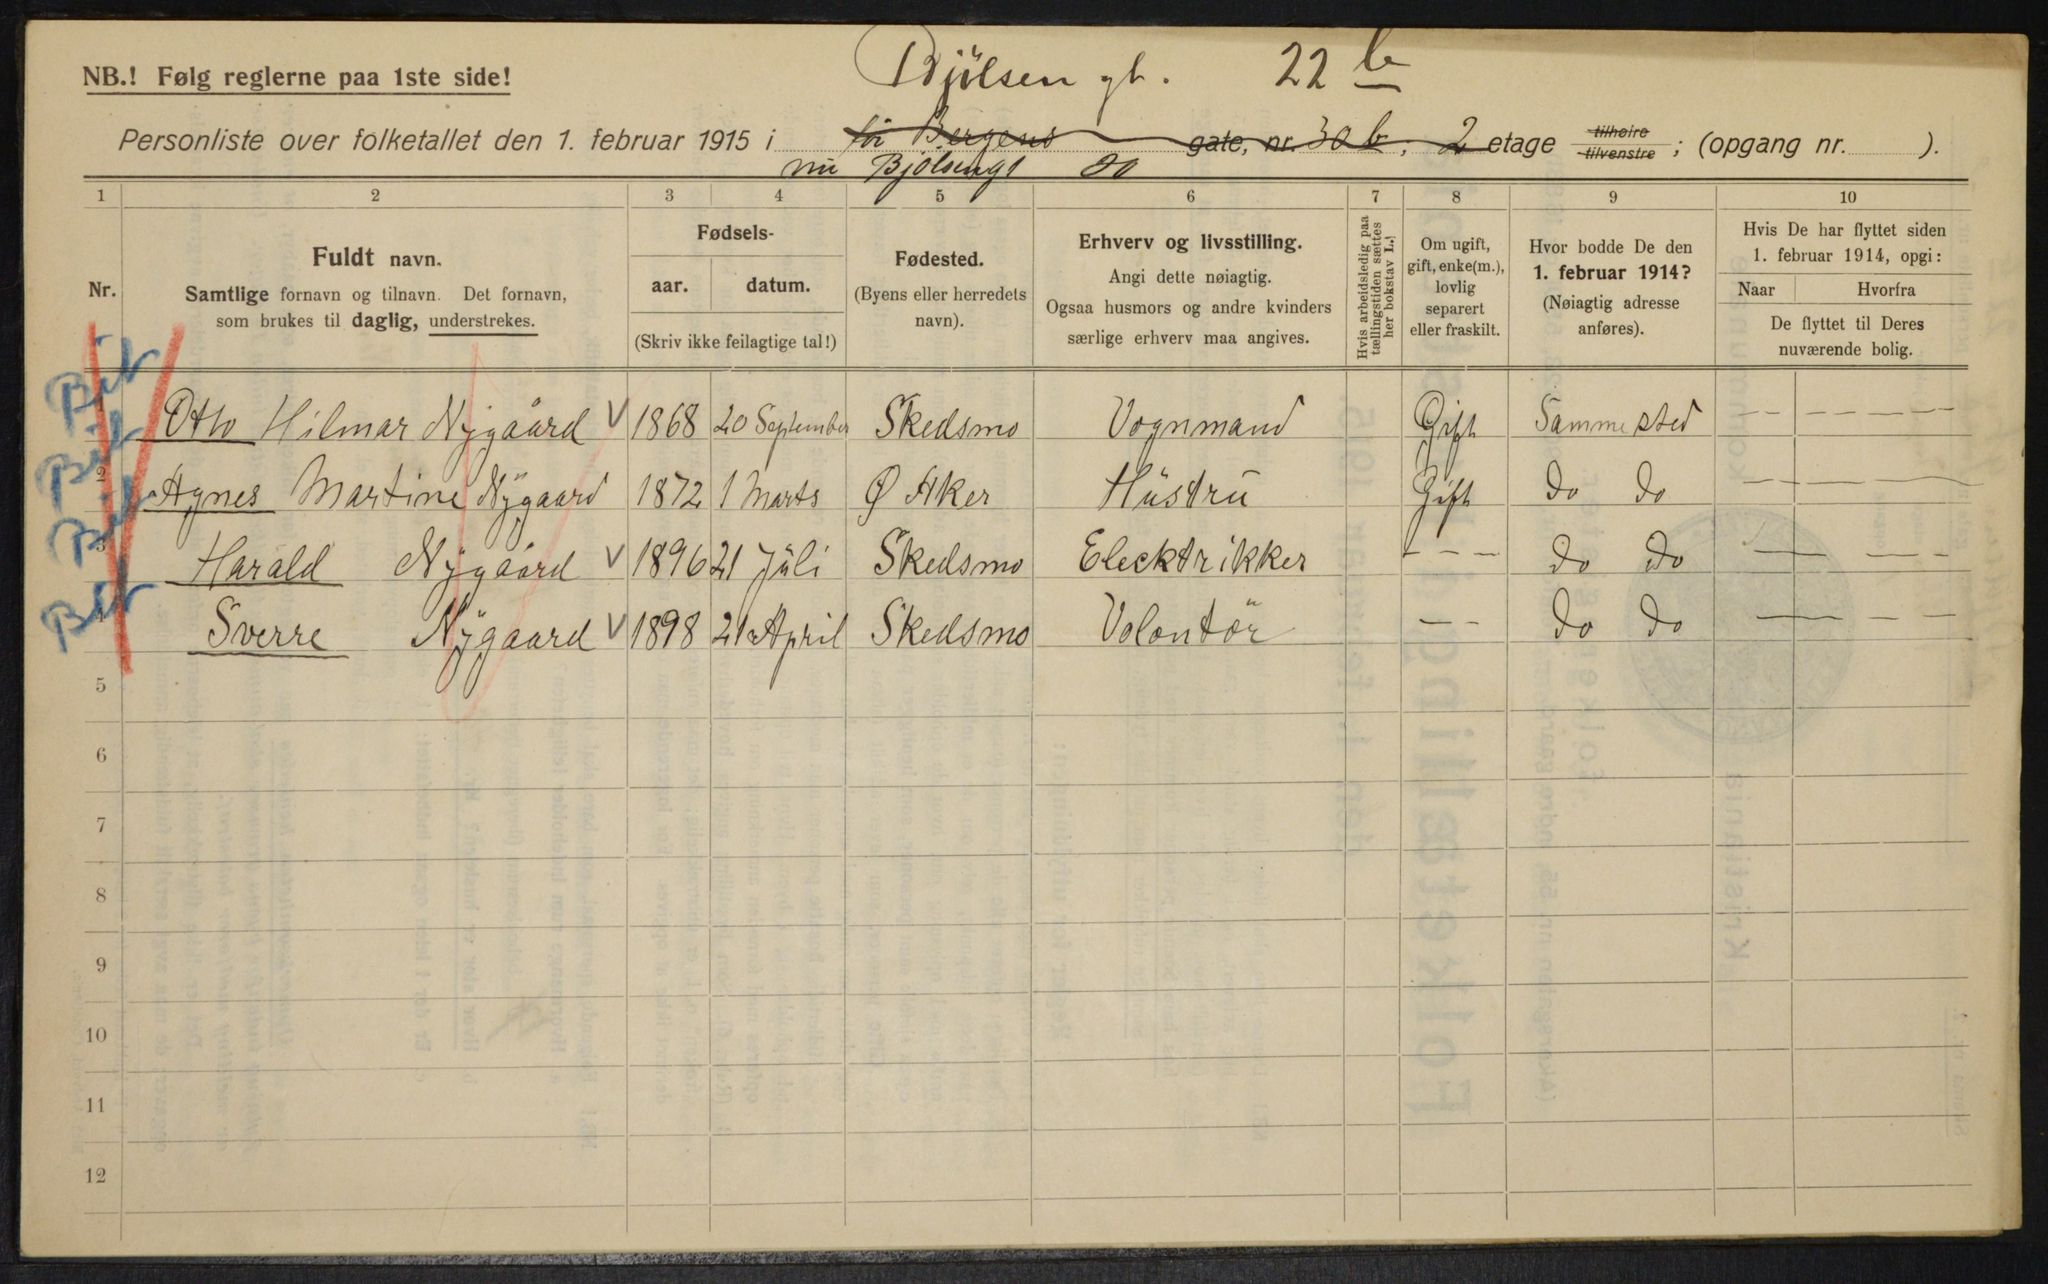 NB.! Følg reglerne paa 1ste side!
Bjölsen gt. 22 b
Personliste over folketallet den 1. februar 1915 i för Bergens gate, nr. 30 b, 2 etage tilhøire tilvenstre ; (opgang nr. ).
nu Bjölsengt do
1 2 3 4 5 6 7 8 9 10
Nr.
Fuldt navn.
Samtlige fornavn og tilnavn. Det fornavn,
som brukes til daglig, understrekes.
Fødsels-
aar. datum.
(Skriv ikke feilagtige tal!)
Fødested.
(Byens eller herredets
navn).
Erhverv og livsstilling.
Angi dette nøiagtig.
Ogsaa husmors og andre kvinders
særlige erhverv maa angives.
Hvis arbeidsledig paa
tællingstiden sættes
her bokstav L.!
Om ugift,
gift, enke(m.),
lovlig
separert
eller fraskilt.
Hvor bodde De den
1. februar 1914?
(Nøiagtig adresse
anføres).
Hvis De har flyttet siden
1. februar 1914, opgi:
Naar Hvorfra
De flyttet til Deres
nuværende bolig.
1 Otto Hilmar Nygaard V 1868 20 September Skedsmo Vognmand Gift Samme sted — — — — — —
2 Agnes Martine Nygaard 1872 1 Marts Ø Aker Hüstrü Gift do do — — — — —
3 Harald Nygaard V 1896 21 Jüli Skedsmo Elecktrikker — — — do do — — — —
4 Sverre Nygaard V 1898 21 April Skedsmo Volontör — — do do — — — —
5
6
7
8
9
10
11
12